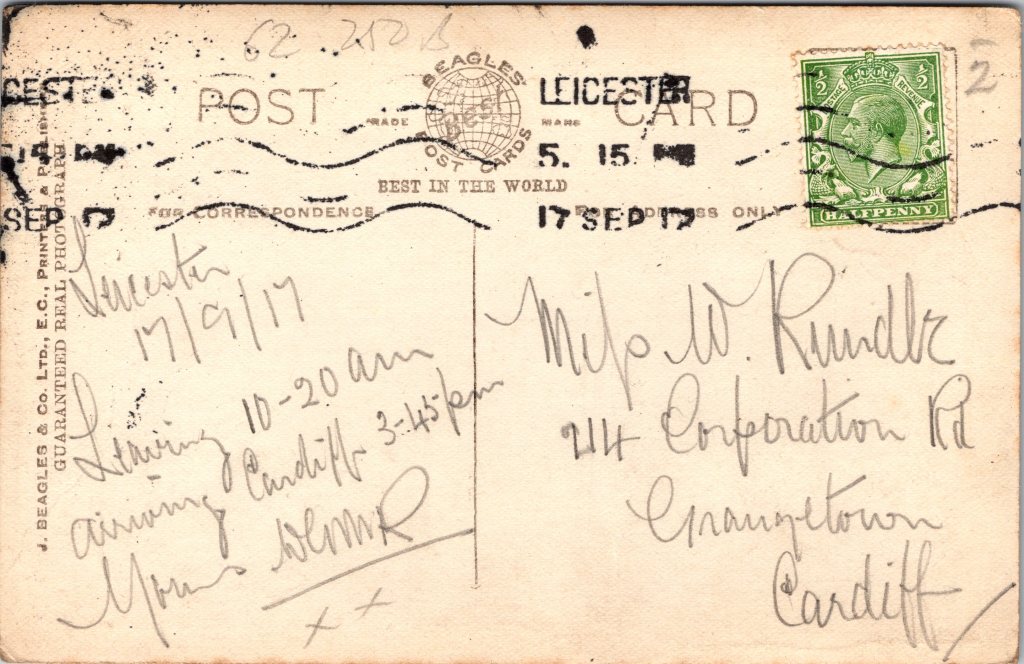 62 250 B
POST CARD
BEAGLES'
BEST
POST CARDS
MADE MARK
BEST IN THE WORLD
FOR CORRESPONDENCE
FOR ADDRESS ONLY
LEICESTER
5. 15
17 SEP 17
CESTE
SEP 17
1/2 1/2
POSTAGE REVENUE
HALFPENNY
1/2
J. BEAGLES & CO. LTD., E.C., PRINTERS & PUBLISHERS
GUARANTEED REAL PHOTOGRAPH
Leicester
17/9/17
Leaving 10-20 am
arriving Cardiff 3-45 pm
Yours
x x
Miss W. Rundle
214 Corporation Rd
Grangetown
Cardiff